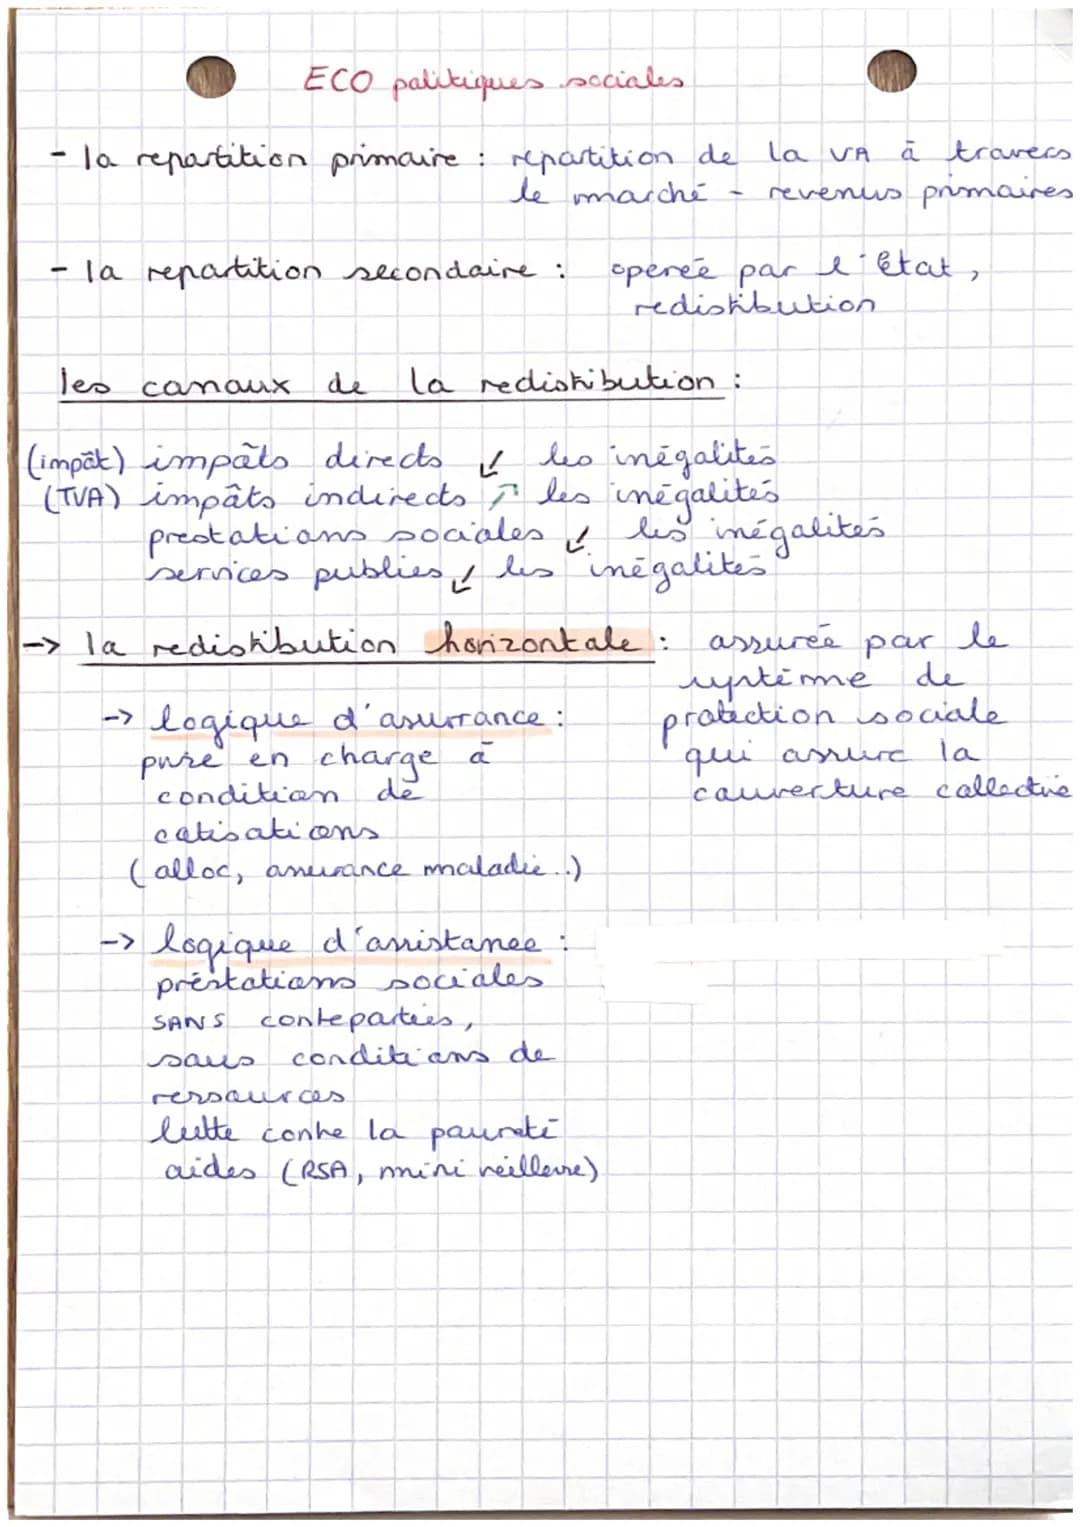 ECO politiques sociales
- la repartition primaire : repartition de la VA à travers
le marché - revenus primaires
- la repartition secondaire : operée par l'État,
redistribution
les canaux de la redistribution :
(impôt) impôts directs ↙ les inégalités
(TVA) impôts indirects ↗ les inégalités
prestations sociales ↙ les inégalités
services publics ↙ les inégalités
-> la redistribution horizontale : assurée par le
système de
protection sociale
qui assure la
couverture collective
-> logique d'assurance :
prise en charge à
condition de
cotisations
(alloc, assurance maladie..)
-> logique d'assistance :
préstations sociales
SANS conteparties,
sous conditions de
ressources
lutte contre la pauvreté
aides (RSA, mini veillesse)